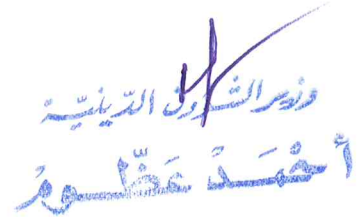 وزير الشؤون الدّينيّة
أحْمَدْ عَظّومْ